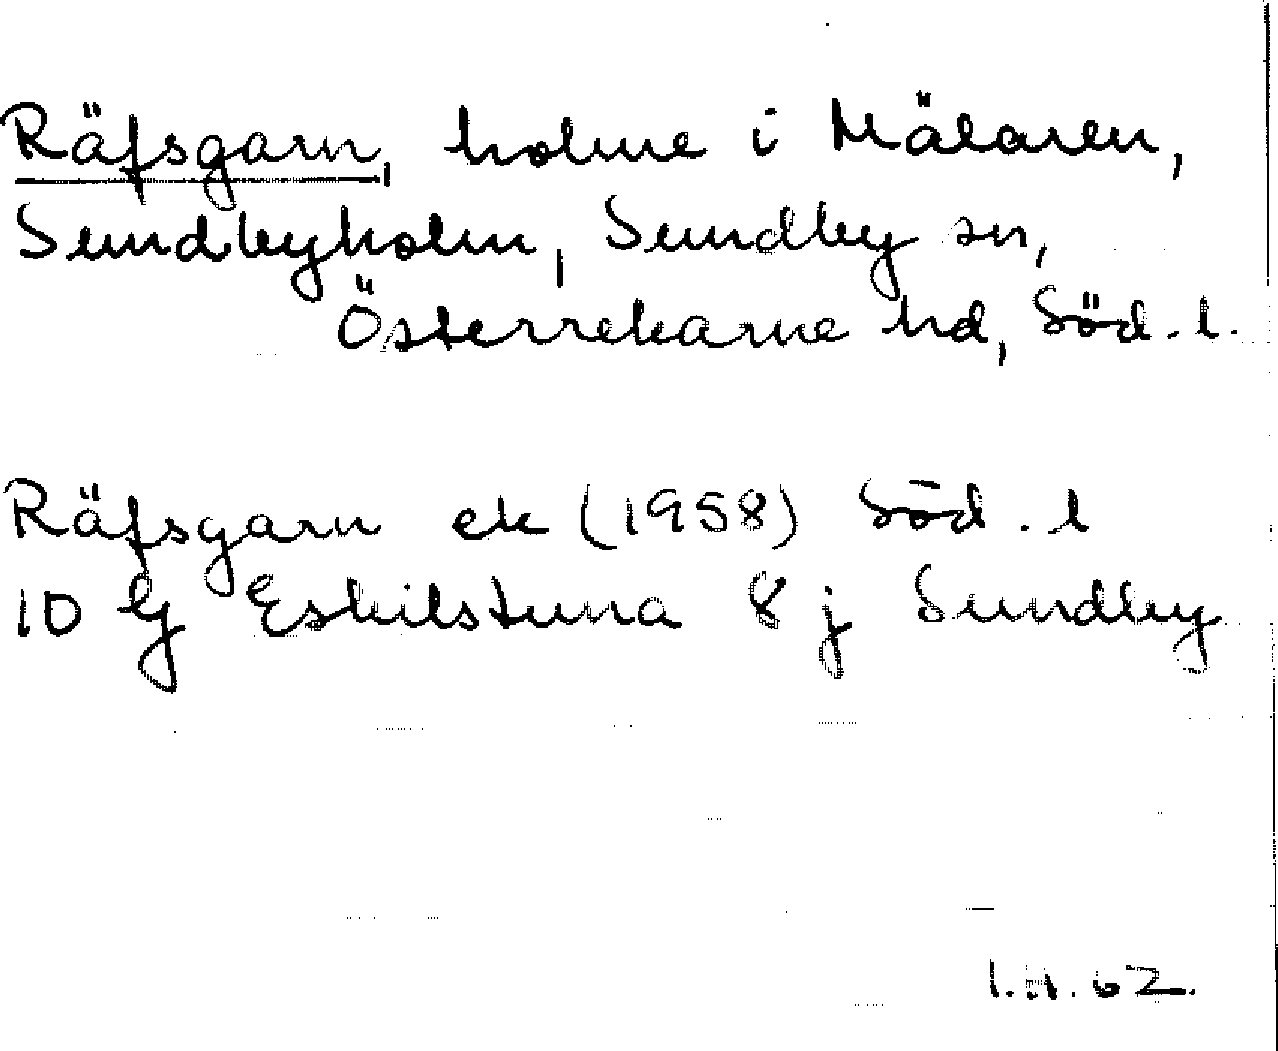 Räfsgarn, holme i Mälaren,
Sundbyholm, Sundby sn,
Österrekarne hd, Söd. l.
Räfsgarn ek (1958) Söd. l
10 G Eskilstuna 8 j Sundby